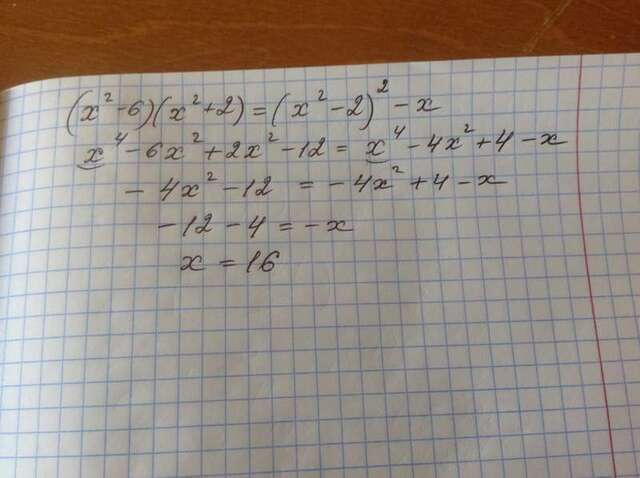 (x²-6)(x²+2)=(x²-2)²-x
x⁴-6x²+2x²-12=x⁴-4x²+4-x
-4x²-12=-4x²+4-x
-12-4=-x
x=16